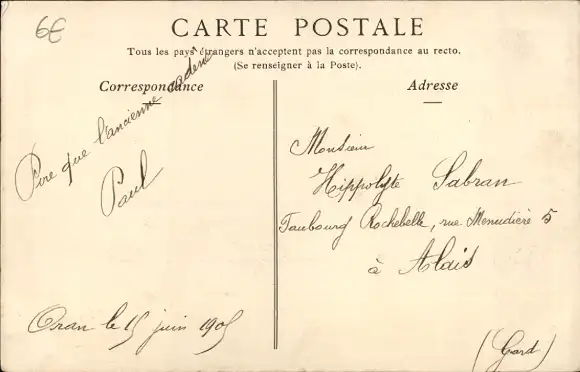 6€
CARTE POSTALE
Tous les pays étrangers n'acceptent pas la correspondance au recto.
(Se renseigner à la Poste).
Correspondance
Pire que l'ancienne
Paul
Oran le 15 juin 1905
Adresse
Monsieur
Hippolyte Sabran
Faubourg Rochebelle, rue Menudière 5
à Alais
(Gard)